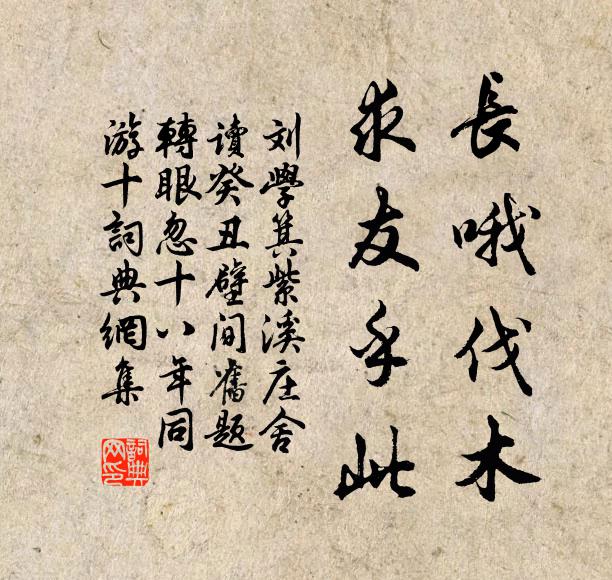 長哦伐木
求友乎此
刘學箕紫溪庄舍
讀癸丑壁间舊题
轉眼忽十八年同
游十詞典網集
詞典
网印